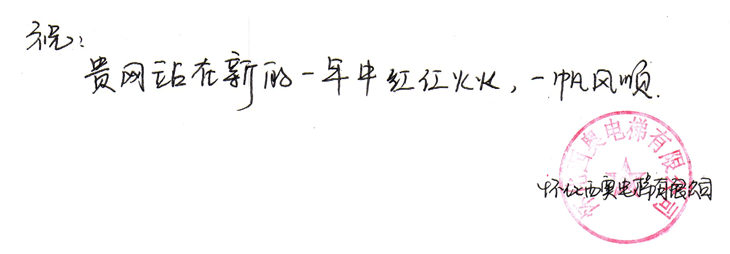 祝：
贵网站在新的一年中红红火火，一帆风顺.
怀化西奥电梯有限公司
怀化西奥电梯有限公司